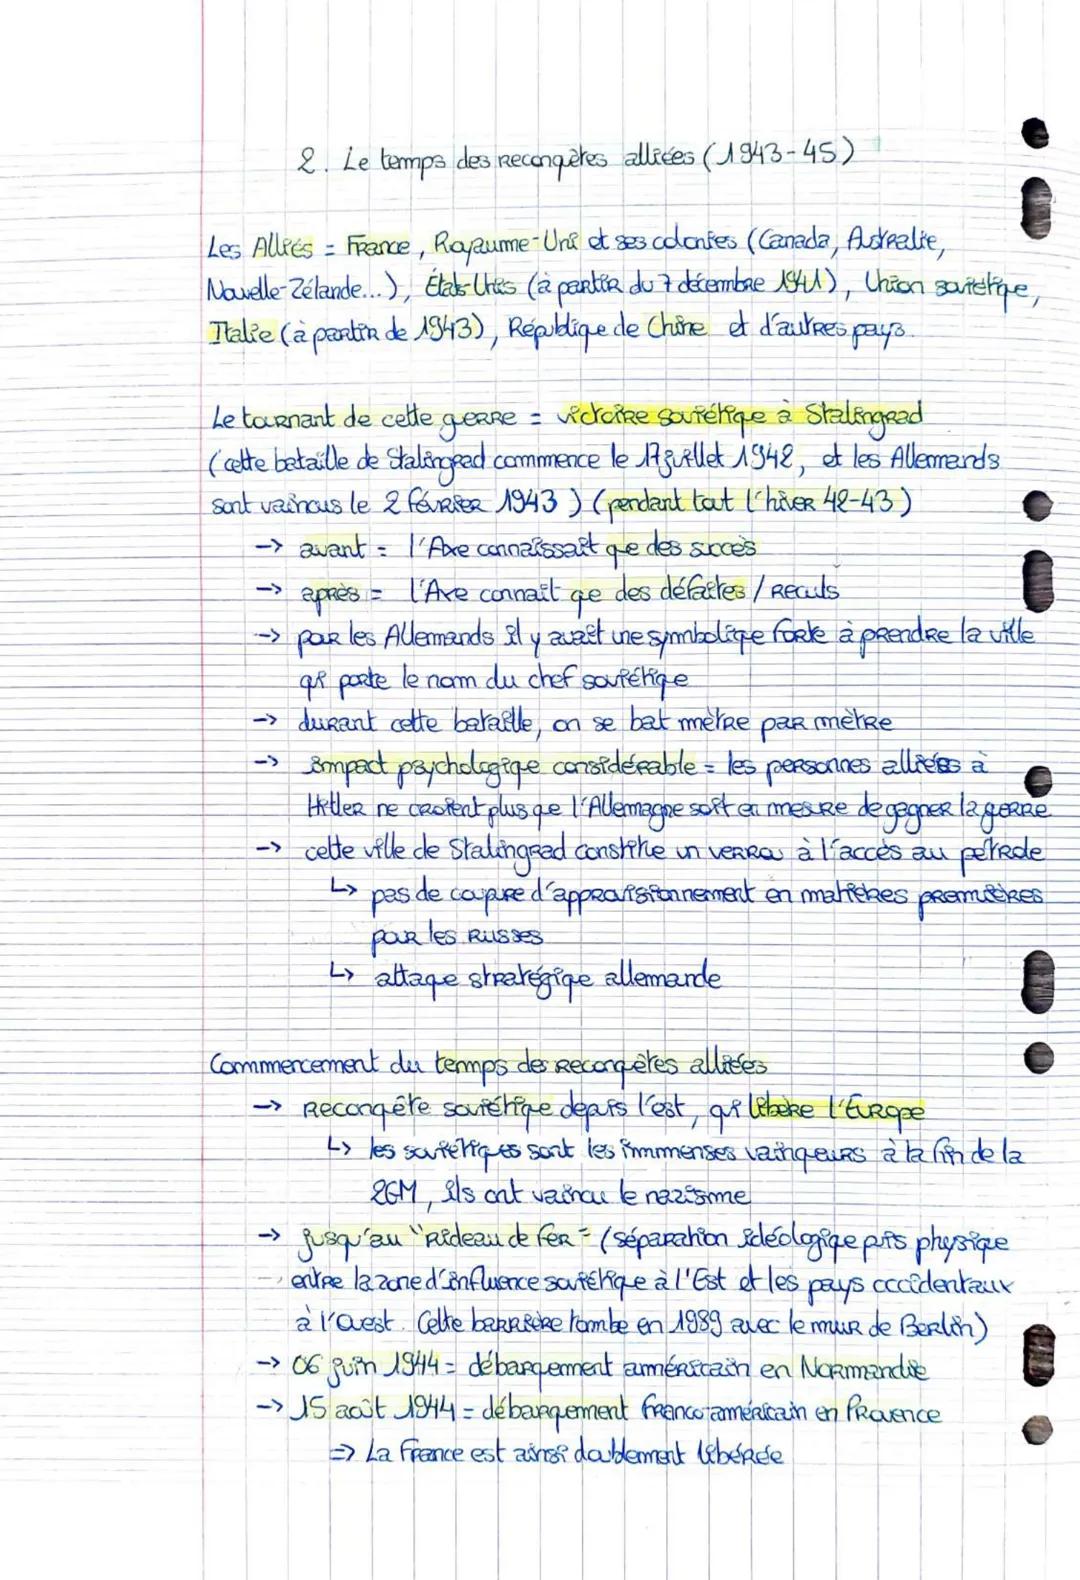 2. Le temps des reconqêtes alliées (1943-45)
Les Alliés = France, Royaume-Uni et ses colonies (Canada, Australie,
Nouvelle-Zélande...), États-Unis (à partir du 7 décembre 1941), Union soviétiqe,
Italie (à partir de 1943), Républiqe de Chine et d'autres pays.
Le tournant de cette gerre = victoire soviétiqe à Stalingrad
(cette bataille de Stalingrad commence le 17 juillet 1942, et les Allemands
sont vaincus le 2 février 1943) (pendant tout l'hiver 42-43)
-> avant = l'Axe connaissait qe des succès
-> après = l'Axe connaît qe des défaites / reculs
-> pour les Allemands il y avait une symboliqe forte à prendre la ville
qi porte le nom du chef soviétiqe
-> durant cette bataille, on se bat mètre par mètre
-> impact psychologiqe considérable = les personnes alliées à
Hitler ne croient plus qe l'Allemagne soit en mesure de gagner la gerre
-> cette ville de Stalingrad constitue un verrou à l'accès au pétrole
↳ pas de coupure d'approvisionnement en matières premières
pour les Russes
↳ attaqe stratégiqe allemande
Commencement du temps des reconqêtes alliées
-> Reconqête soviétiqe depuis l'est, qi libère l'Europe
↳ les soviétiqes sont les immenses vainqeurs à la fin de la
2GM, ils ont vaincu le nazisme
-> jusqu'au "Rideau de Fer" = (séparation idéologiqe puis physiqe
entre la zone d'influence soviétiqe à l'Est et les pays occidentaux
à l'Ouest. Cette barrière tombe en 1989 avec le mur de Berlin)
-> 06 juin 1944 = débarqement américain en Normandie
-> 15 août 1944 = débarqement franco-américain en Provence
=> La France est ainsi doublement libérée